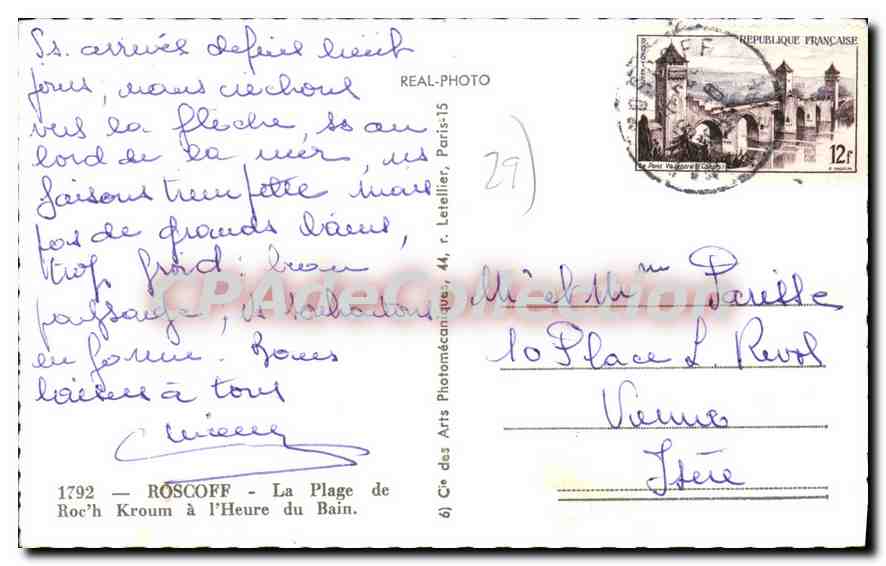 Ss. arrivés depuis huit
jours, nous séchons
vers la flèche, ss au
bord de la mer, ns
faisons trempette mais
pas de grands bains,
trop froid: beau
paysage, vs souhaitons
en forme. Bons
baisers à tous
1792 — ROSCOFF - La Plage de
Roc'h Kroum à l'Heure du Bain.
REAL-PHOTO
6) Cie des Arts Photomécaniques, 44, r. Letellier, Paris-15
29)
ROSCOFF
REPUBLIQUE FRANÇAISE
12F
Le Pont Valentré Cahors
Mr et Mme Parisse
10 Place L. Revol
Vienne
Isère
CPAdeCollection